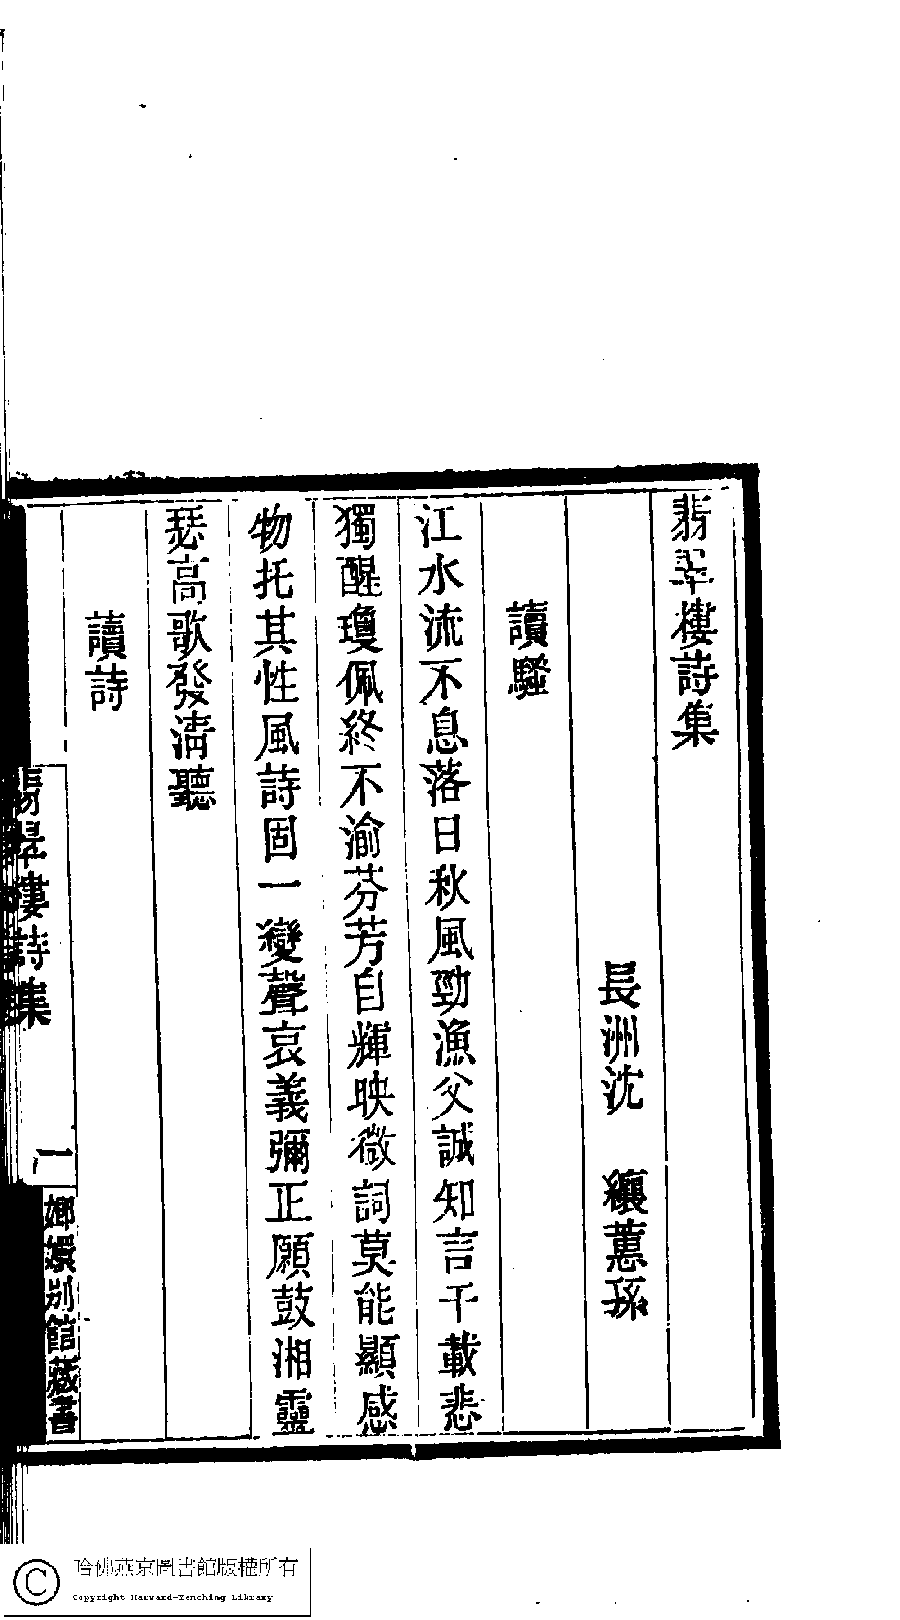 翡翠樓詩集
長洲沈 纕蕙孫
讀騷
江水流不息落日秋風勁漁父誠知言千載悲
獨醒瓊佩終不渝芬芳自輝映微詞莫能顯感
物托其性風詩固一變聲哀義彌正願鼓湘靈
瑟高歌發清聽
讀詩
翡翠樓詩集
一
嫏嬛別館藏書
哈佛燕京圖書館版權所有
Copyright Harvard-Yenching Library